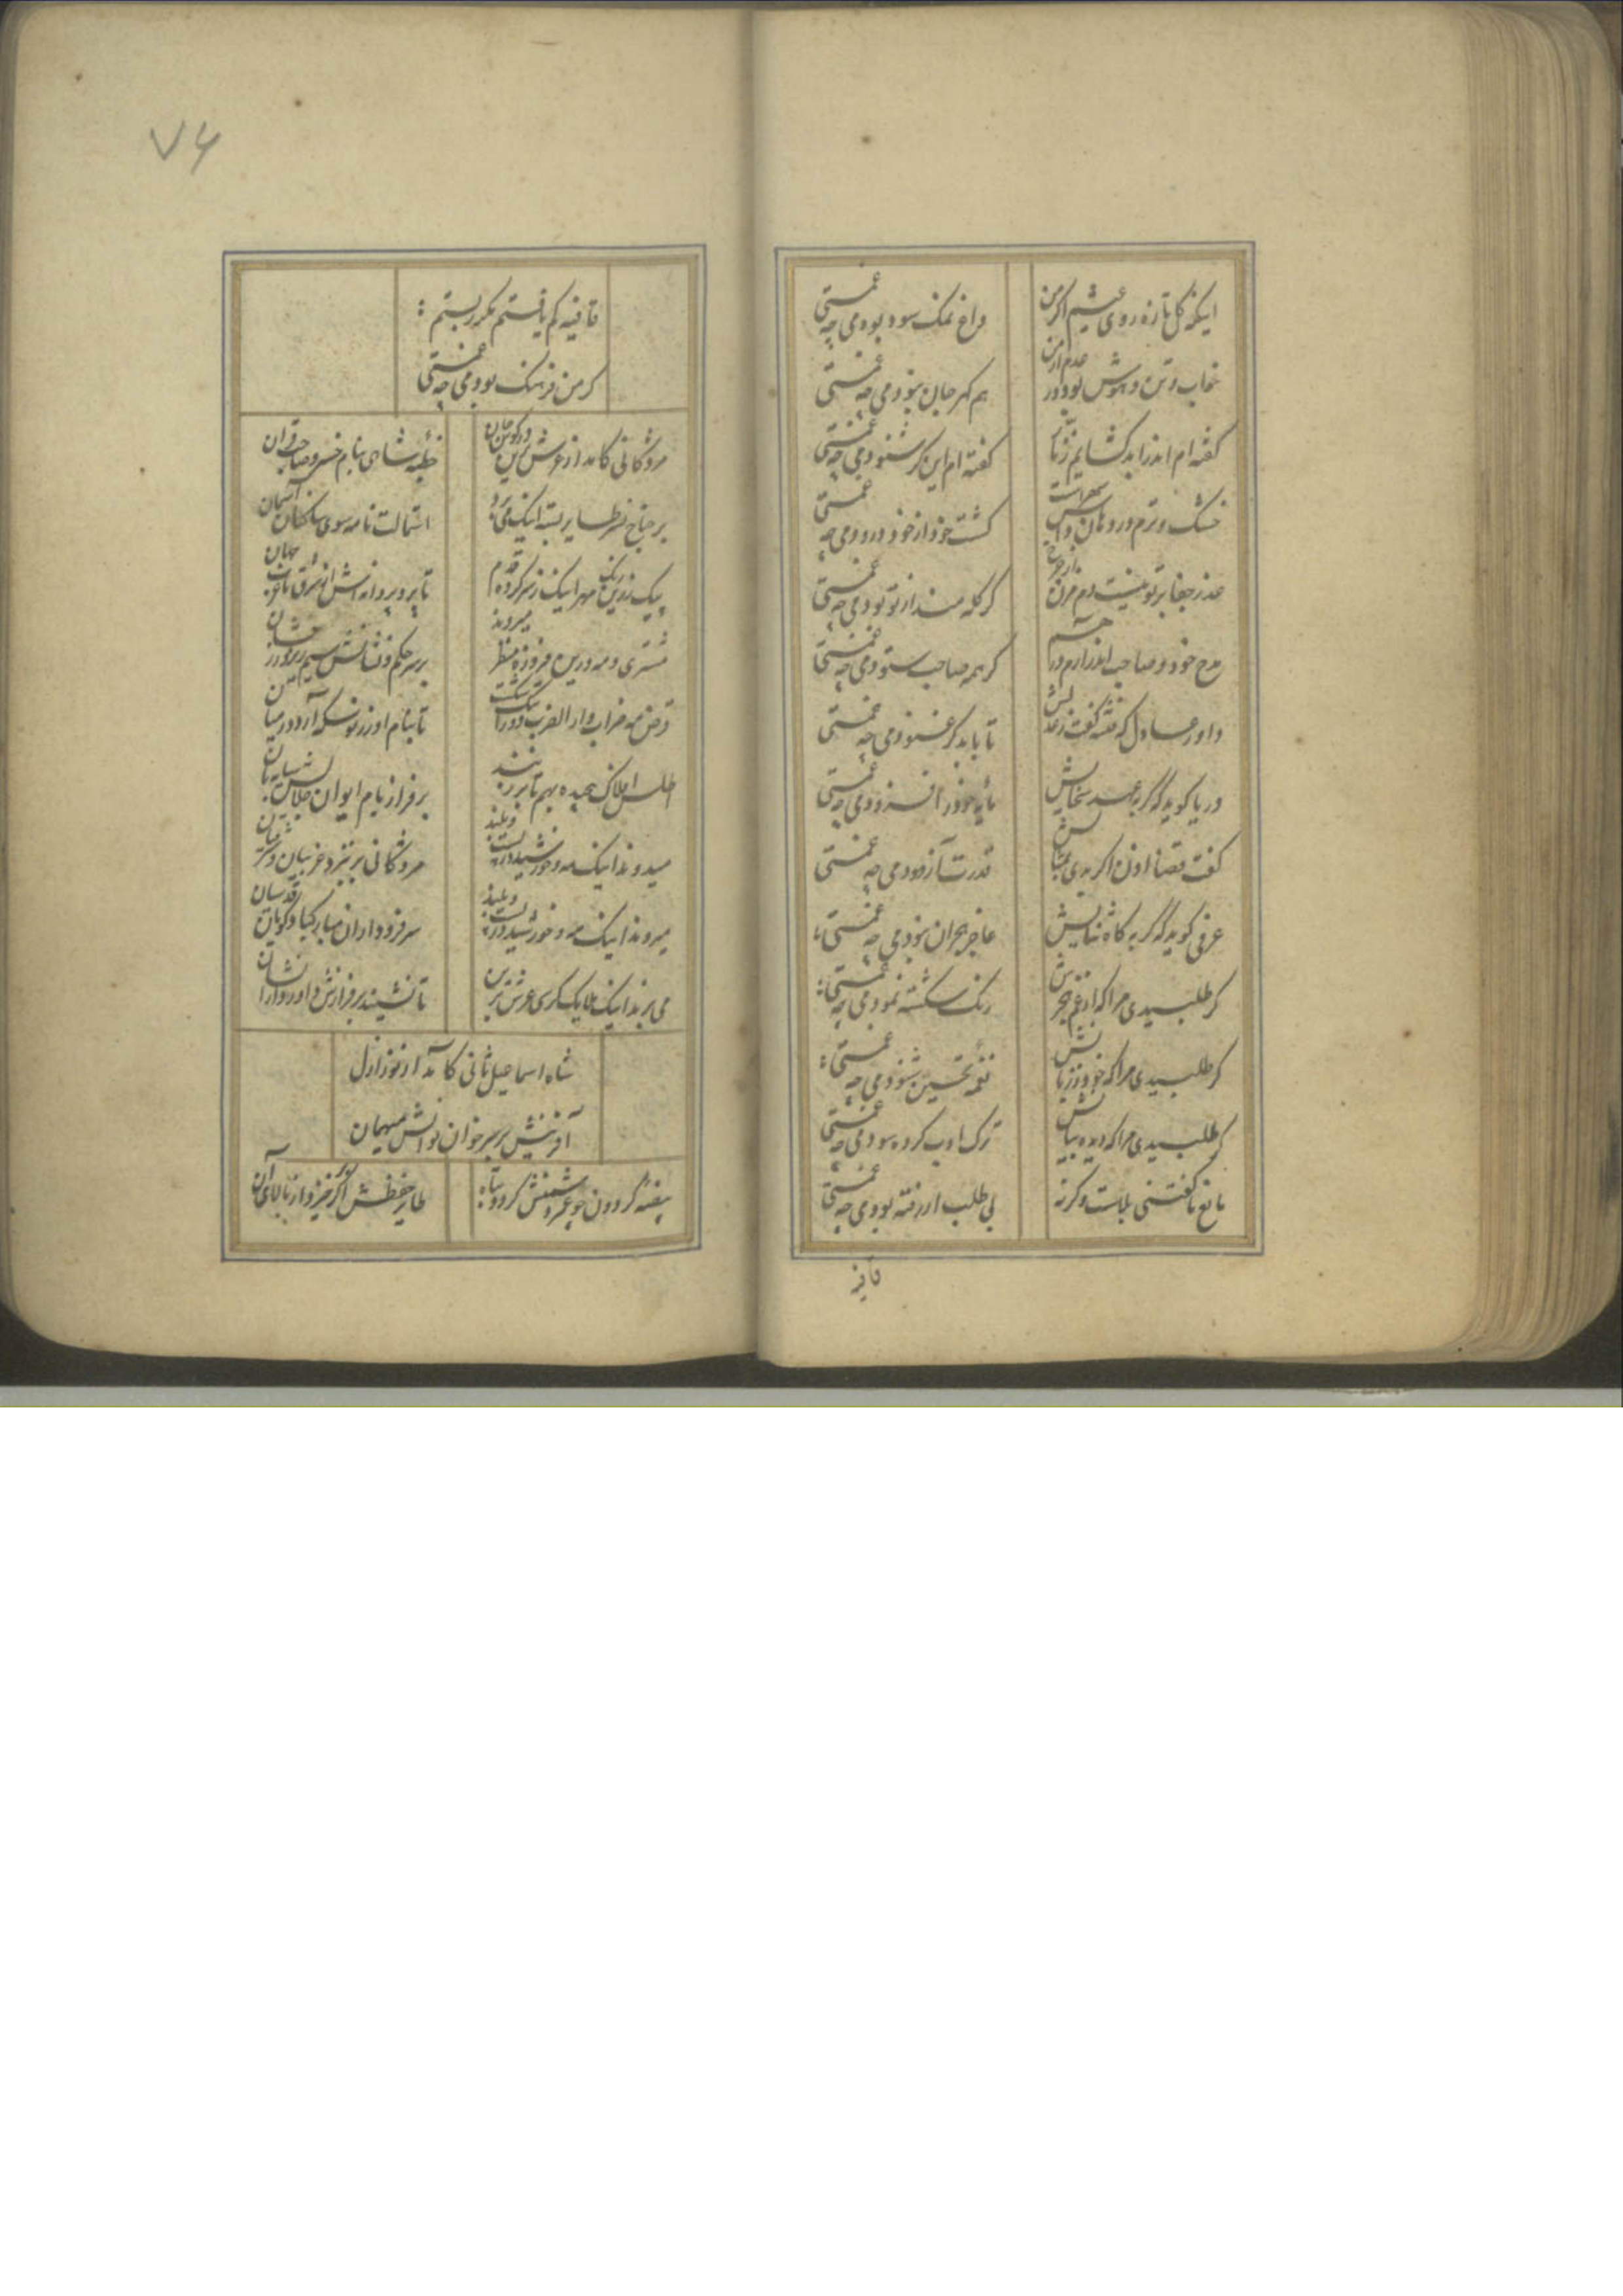 اینکه گل تازه روی عیشم اگر من
داغ نمک سود بودمی چه غمستی
خاب و تن و هوش بود دور عدم از من
هم گهر جان نبودمی چه غمستی
گفته ام اندرزا بد گشایم ز زبان
گفته ام این گر شنودمی چه غمستی
خشک و ترم در دهان داس
گشت خود از خود درودمی چه غمستی
عذر جفا بر تو نیست دم مزن
گر گله مند از تو بودمی چه غمستی
مدح خود و صاحب اندر آرم در هم
گر همه صاحب ستودمی چه غمستی
داور عادل که فتنه گفت ز عدلش
تا بابد گر غنودمی چه غمستی
دریا گوید که گر بعهد سخایش
مایه خود را فزودمی چه غمستی
گفت قضا اون اگر بدی بمثالش
قدرت آزمودمی چه غمستی
عرفی گوید که گر به گاه ثنایش
عاجز بحران نبودمی چه غمستی
گر طلبیدی مرا که از غم هجرش
رنگ شکسته نمودمی چه غمستی
گر طلبیدی مرا که خود ز زبانش
نغمه تحسین شنودمی چه غمستی
گر طلبیدی مرا که دیده بپایش
ترک ادب کرده سودمی چه غمستی
مانع ناگفتنی بلاست وگرنه
بی طلب ار رفته بودمی چه غمستی
قافیه
۷۶
قافیه کم یافتم مکرر بستم
گر من فرهنگ بودمی چه غمستی
مژدگانی کامد از عرش این
خطبه شاهی بنام خسرو صاحبقران
بر جناح نسر طایر بسته اینک می برد
استمالت نامه سوی ساکنان آسمان
پیک زرین مهر اینک ز سر کرده قدم
تا برد پروانه اش از شرق تا غرب جهان
مشتری و مه درین فیروزه منظر میروند
بر سر حکم و نشانش سیم ریز و زر فشان
قرص مه ضراب دار الضرب
تا بنام او ز نو سکه آرد در میان
اطلس افلاک پیچیده بهم تا بر زنند
بر فراز بام ایوان جلالش سایبان
میدوند اینک مه و خورشید در پست و بلند
مژدگانی بر بنزد غربیان و شرقیان
میروند اینک مه و خورشید در پست و بلند
سر فرود اران مبارکباد گویان قدسیان
می برند اینک ملایک کرسی عرش برین
تا نشیند بر فرازش داور دارا نشان
شاه اسماعیل ثانی کامد از نوز ازل
آفرینش بر سر خوان نوالش میهمان
بیضه گردون چو عمر دشمنش گردد تباه
طایر حفظش اگر خیزد از بالای آن